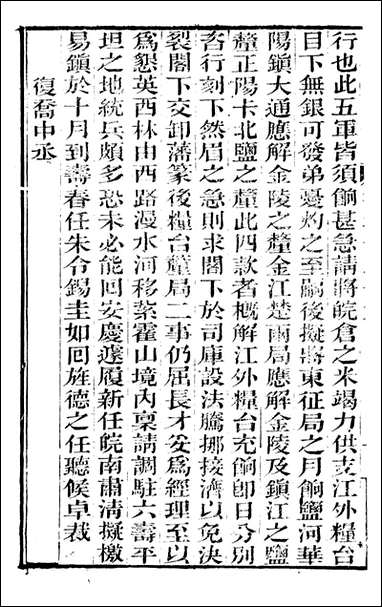 行也此五軍皆須餉甚急請將皖倉之米竭力供支江外糧台
目下無銀可發弟憂灼之至嗣後擬將東征局之月餉鹽河華
陽鎮大通應解金陵之釐金江楚兩局應解金陵及鎮江之鹽
釐正陽卡北鹽之釐此四款者概解江外糧台充餉卽日分別
咨行刻下然眉之急則求閣下於司庫設法騰挪接濟以免決
裂閣下交卸藩篆後糧台釐局二事仍屈長才爰爲經理至以
爲懇英西林由西路漫水河移紮霍山境內稟請調駐六壽平
坦之地統兵頗多恐未必能回安慶遽履新任皖南肅清擬檄
易鎮於十月到壽春任朱令錫圭如回旌德之任聽候卓裁
復喬中丞